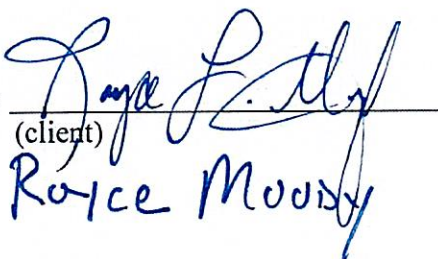 Royce L. Moody
(client)
Royce Moody